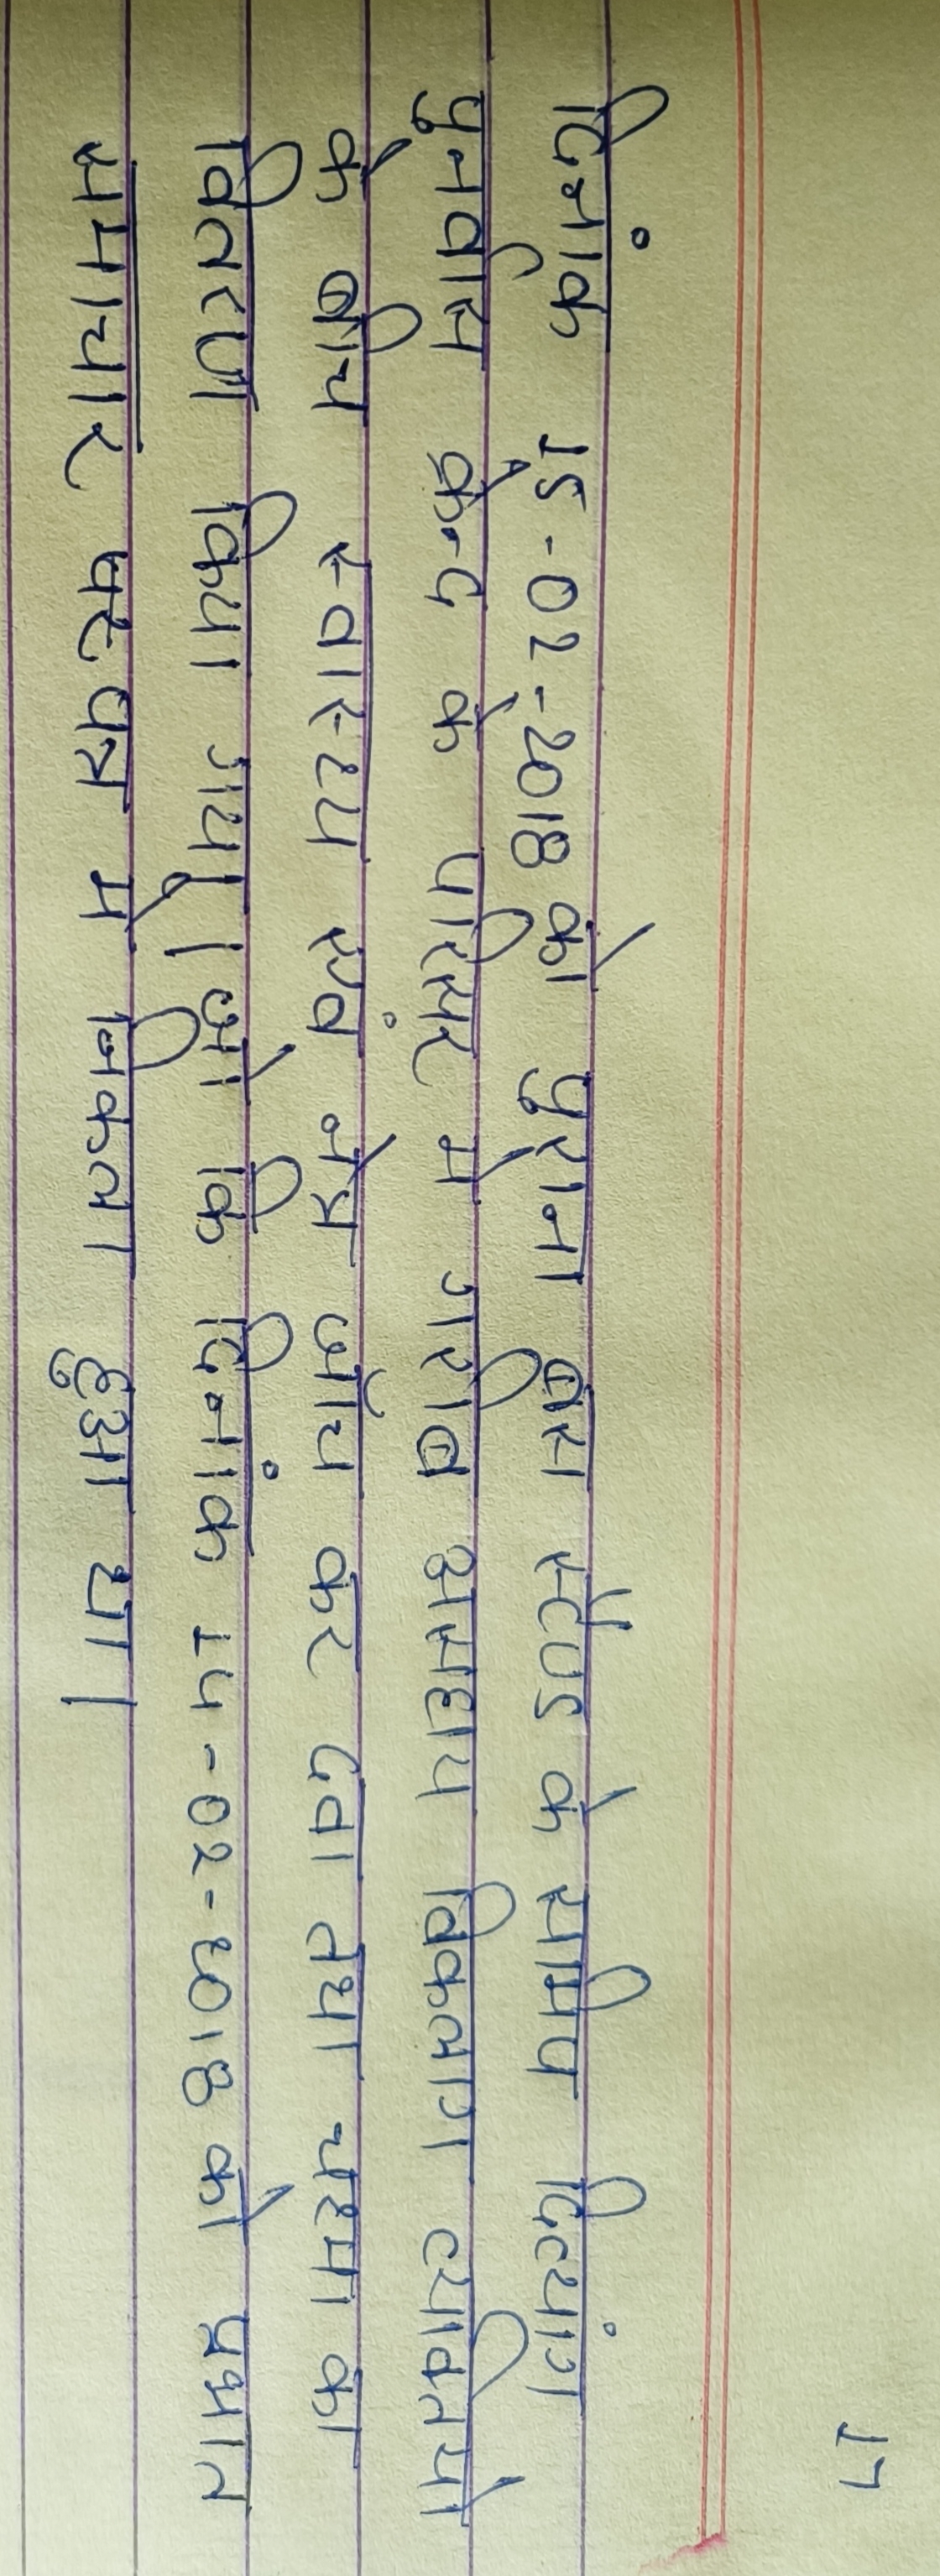 17
दिनांक 15-02-2018 को पुराना बस स्टैण्ड के समिप दिव्यांग
पुनर्वास केन्द के परिसर मे गरीब असहाय विकलांग व्यक्तियो
के बीच स्वास्थ्य एंव नेत्र जाँच कर दवा तथा चश्मा का
वितरण किया गया। जो कि दिनांक 14-02-2018 को प्रभात
समाचार पत्र मे निकला हुआ था।